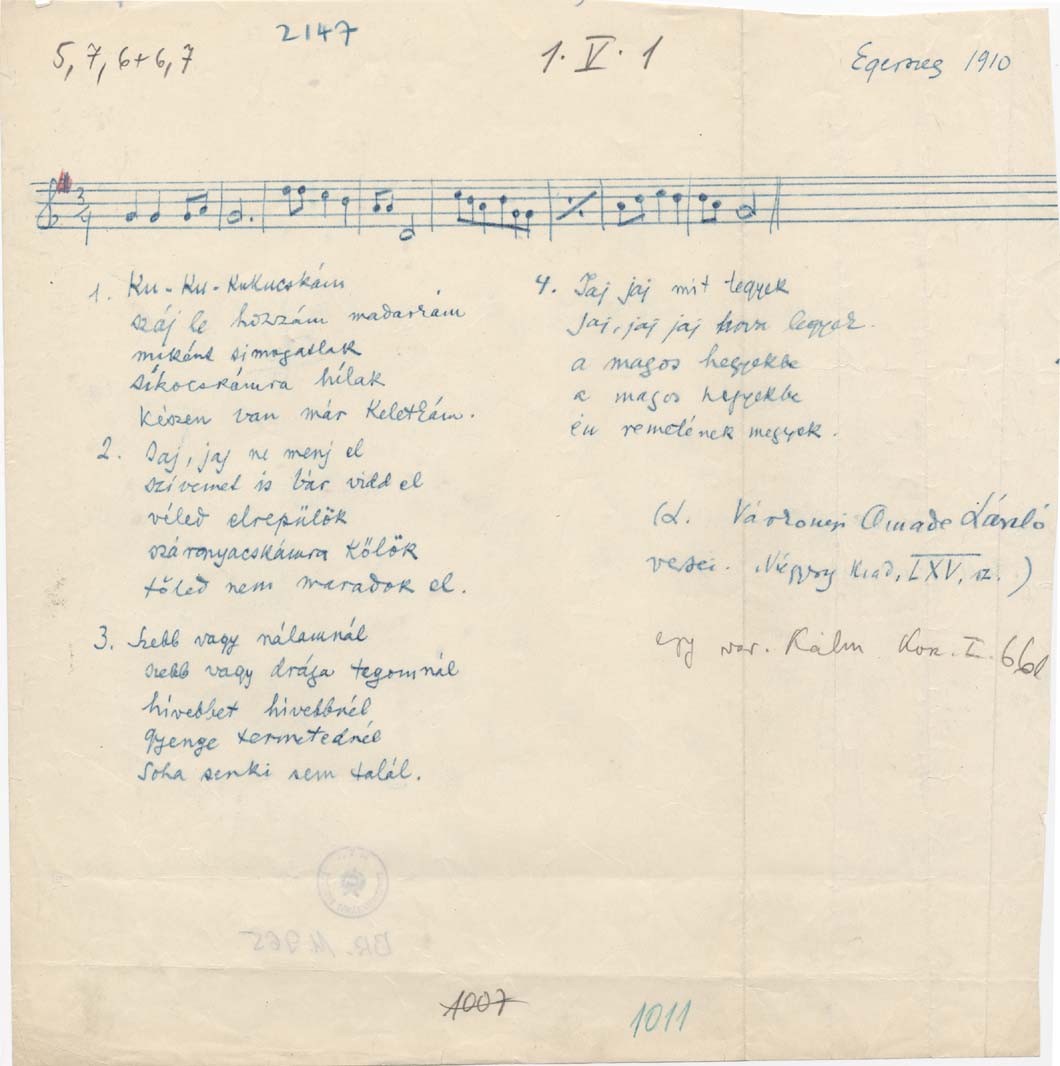 2147
5, 7, 6+6, 7
1. V. 1
Egerszeg 1910
3/4
1. Ku-Ku-Kukucskám
száj le hozzám madárkám
miként simogatlak
síkocskámra hílak
Készen van már Keletkám.
2. Jaj, jaj ne menj el
szívemet is bár vidd el
véled elrepülök
száronyacskámra Kölök
tőled nem maradok el.
3. Szebb vagy nálamnál
szebb vagy drága tegomnál
hívebbet hívebbnél
gyenge termetednél
Soha senki sem talál.
4. Jaj jaj mit tegyek
Jaj, jaj jaj hova legyek.
a magos hegyekbe
a magos hegyekbe
én remetének megyek.
(L. Várkonyi Amade László
versei. Négyesy Kiad, LXV. sz.)
egy var. Kálm Kon. I. 66
1007
1011